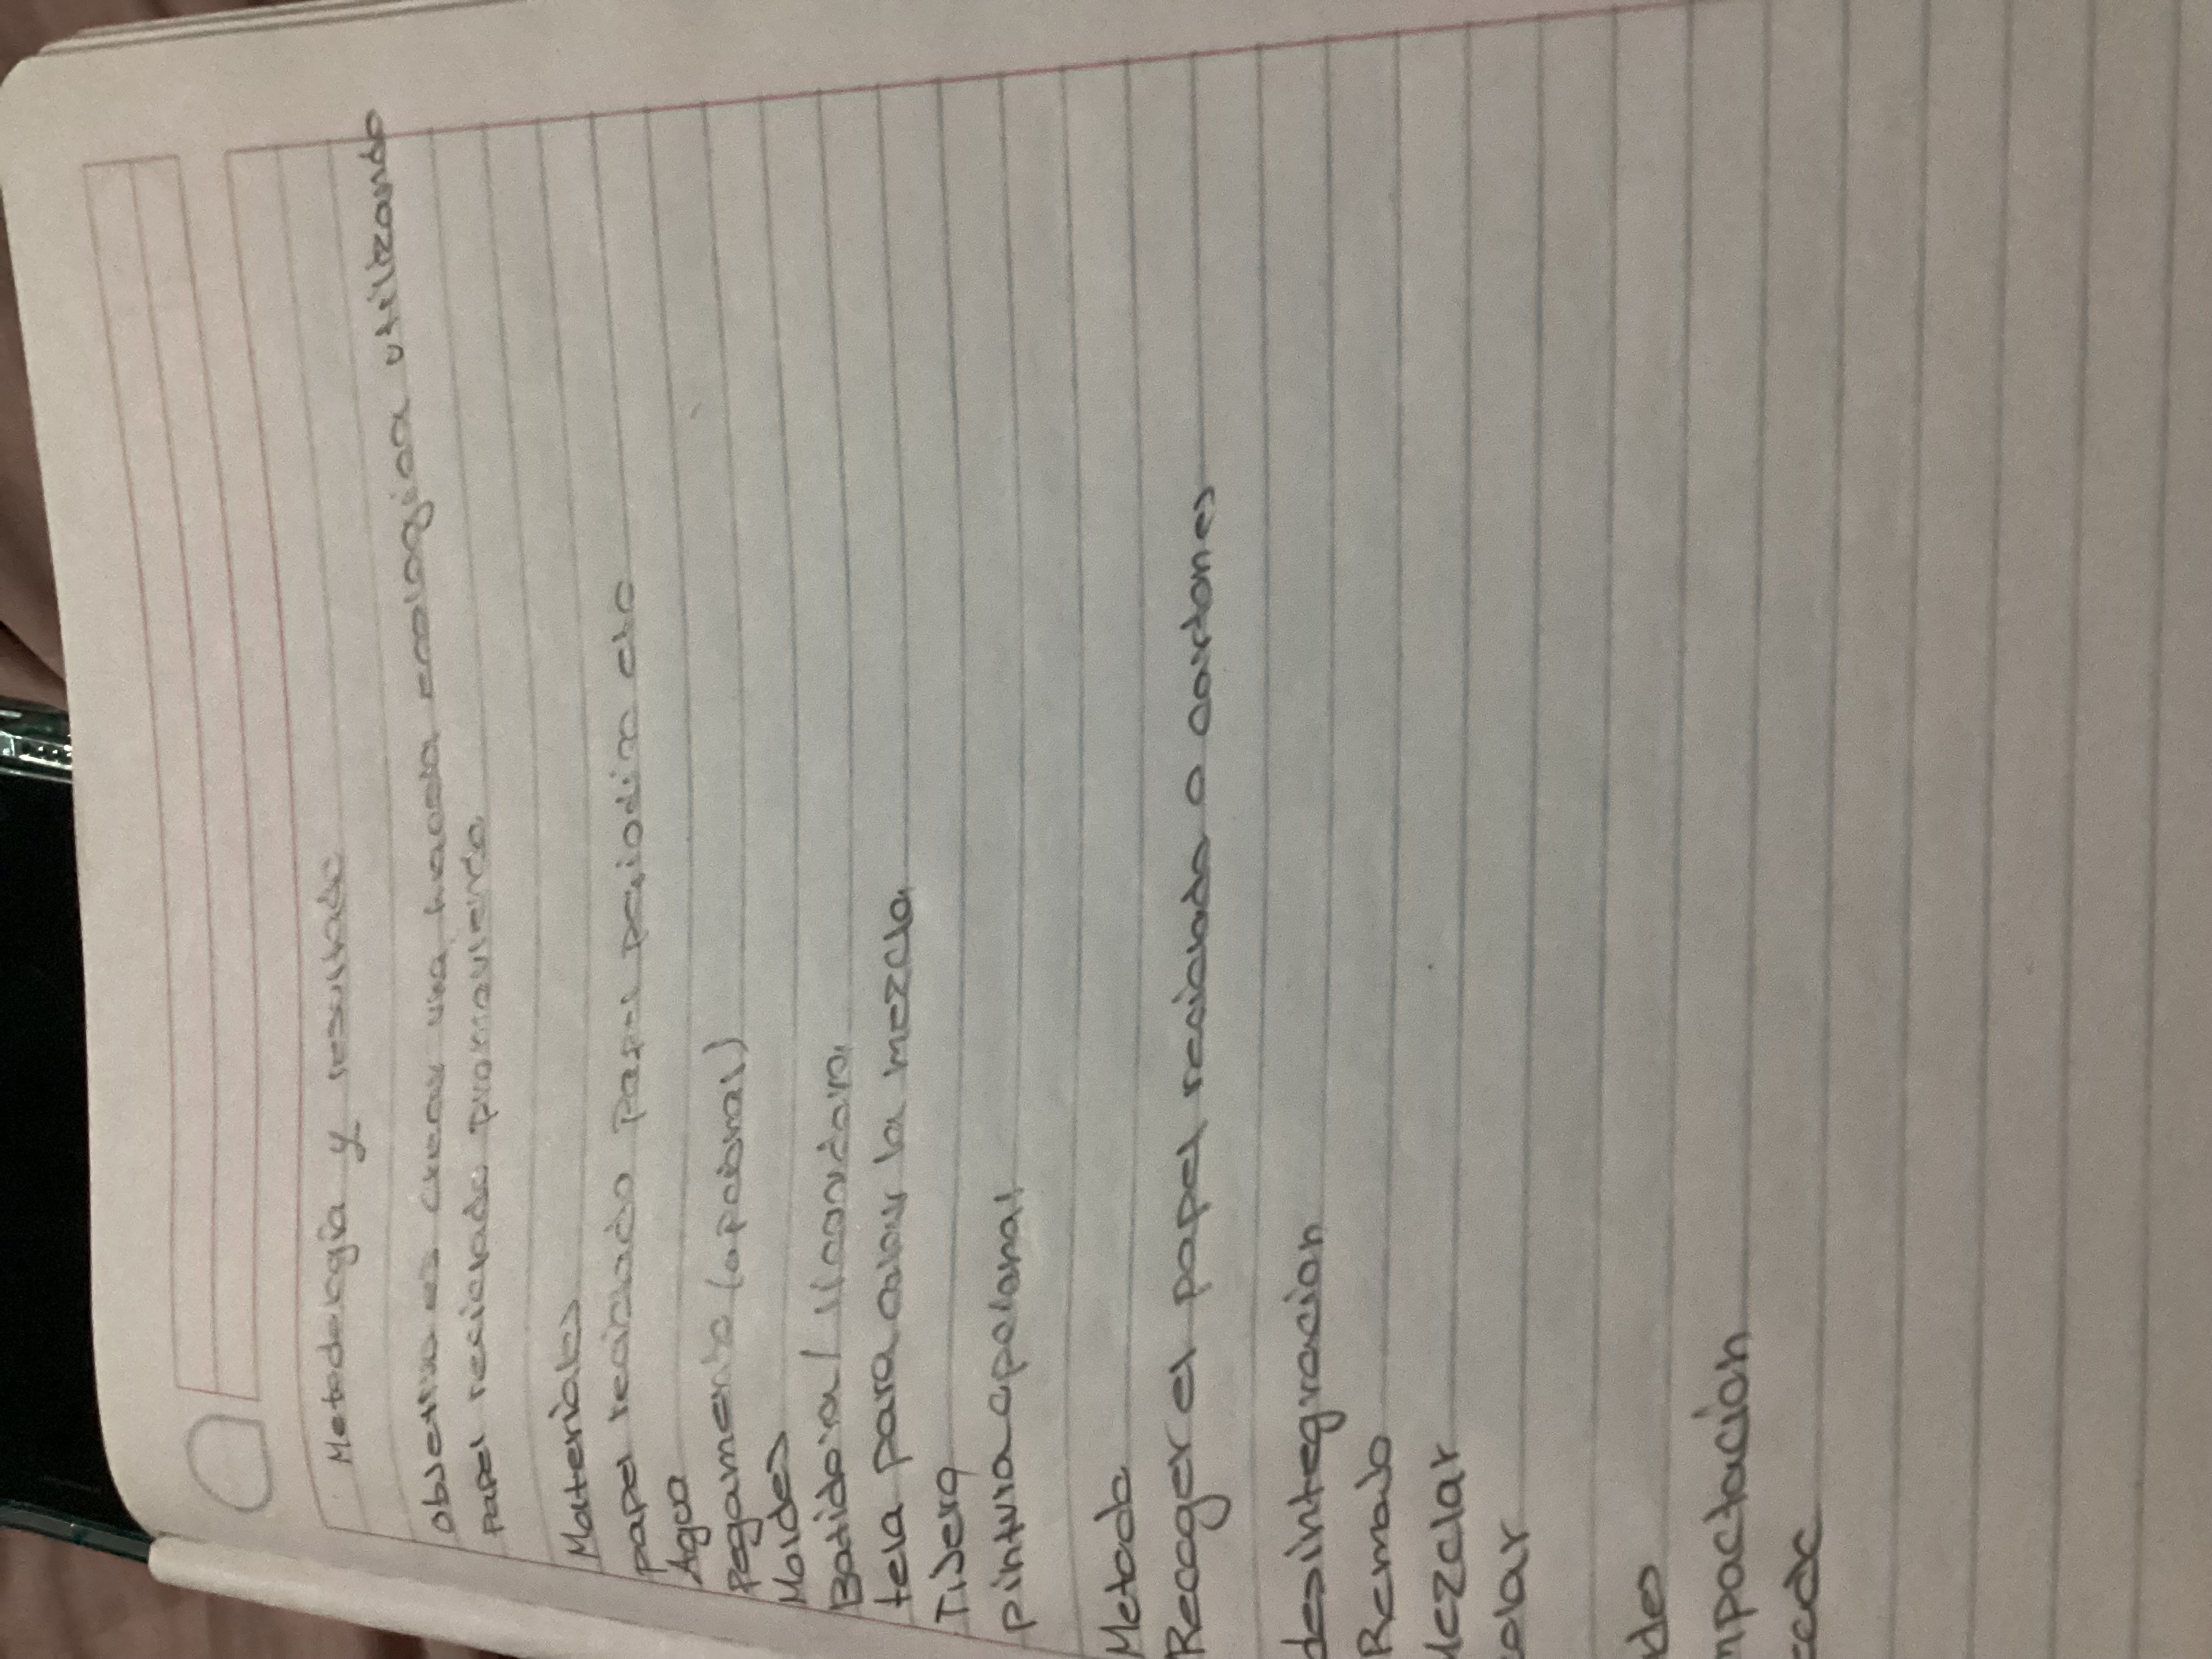 Metodologia y resultado
objetivo es crear una maceta ecologica utilizando
papel reciclado promoviendo
Materiales
papel reciclado papel periodico etc
Agua
Pegamento (opcional)
Moldes
Batidora / licuadora
tela para colar la mezcla
Tijera
pintura opcional
Metodo
Recoger el papel reciclado o cartones
desintegracion
Remojo
Mezclar
colar
do
mpactacion